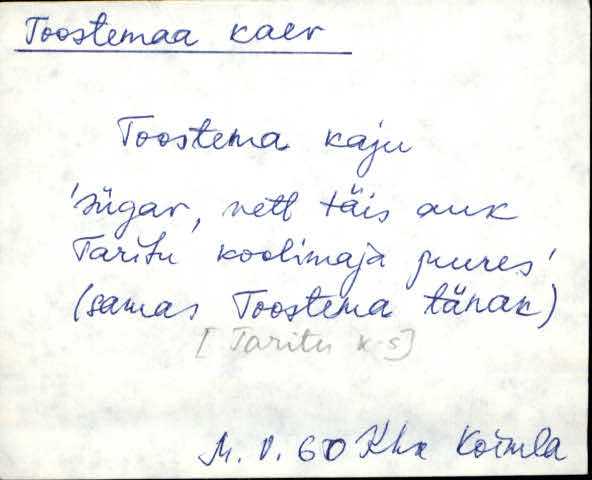 Toostemaa kaev
Toostema kaju
'sügav, vett täis auk
Taritu koolimaja juures'
(samas Toostema tänak)
[Taritu k-s]
M. V. 60 Khk Koimla